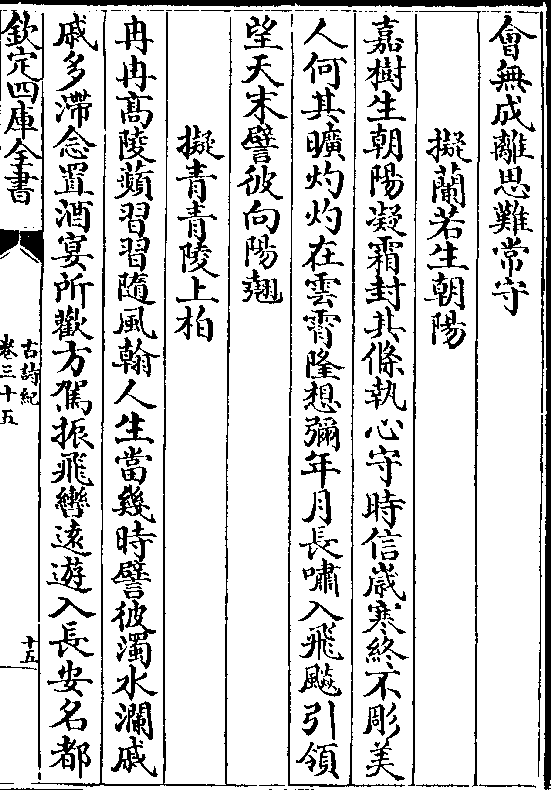 會無成離思難常守
擬蘭若生朝陽
嘉樹生朝陽凝霜封其條執心守時信歲寒終不彫美
人何其曠灼灼在雲霄隆想彌年月長嘯入飛飈引領
望天末譬彼向陽翹
擬青青陵上柏
冉冉高陵蘋習習隨風翰人生當幾時譬彼濁水瀾戚
戚多滯念置酒宴所歡方駕振飛轡逺遊入長安名都
欽定四庫全書
古詩紀
卷三十五
十五